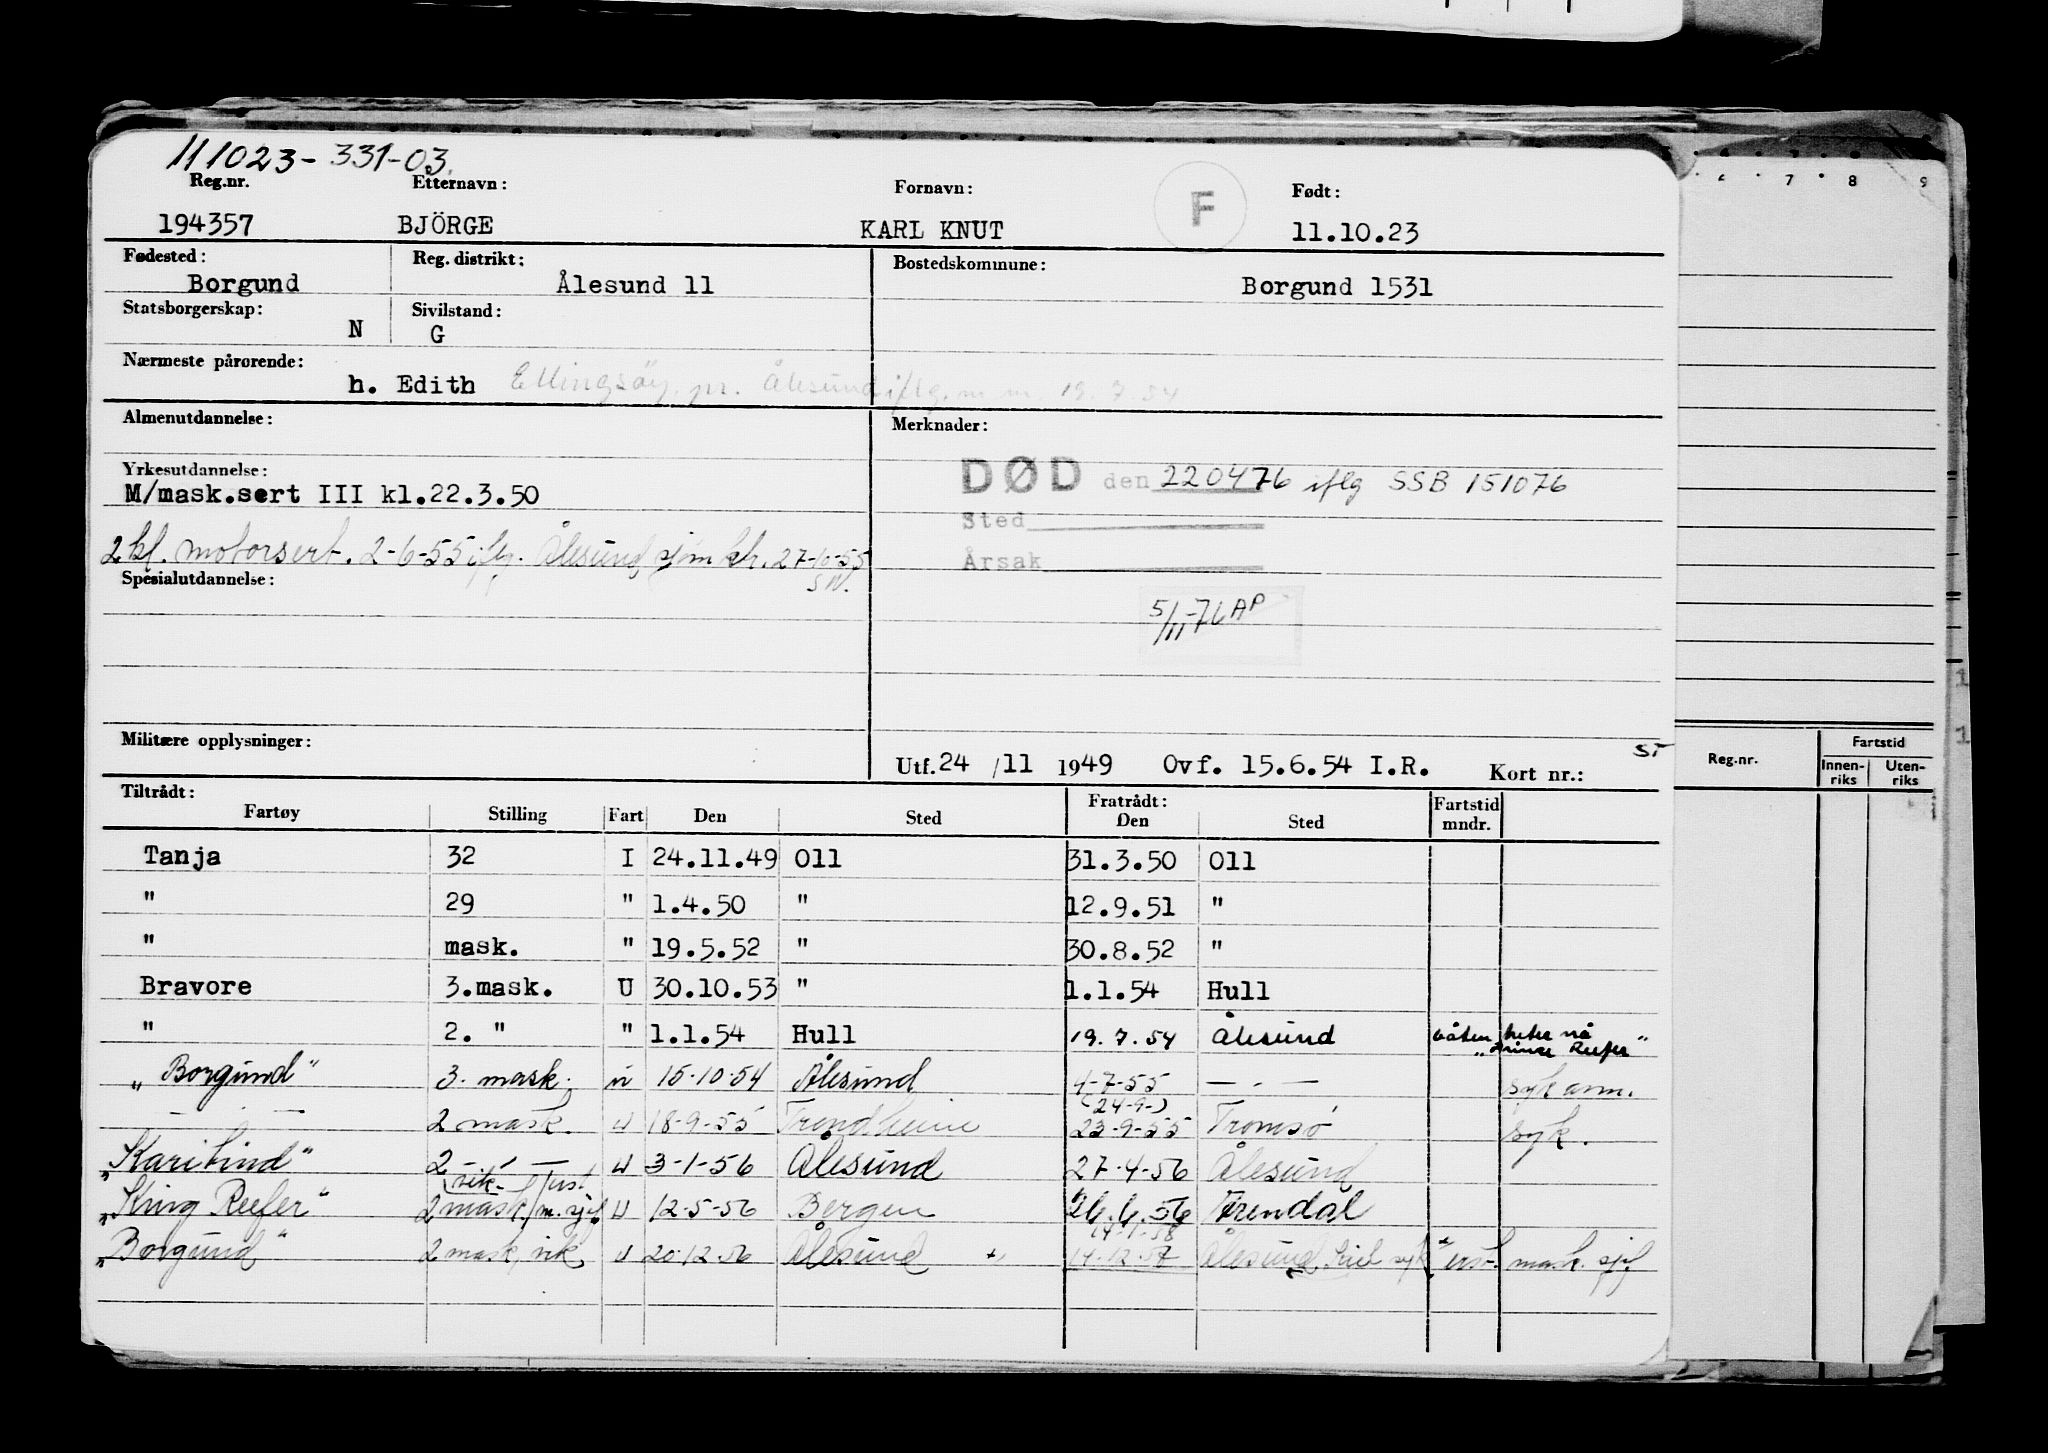 111023-331-03
Reg.nr. Etternavn: Fornavn: F Født:
194357 BJÖRGE KARL KNUT 11.10.23
Fødested: Reg. distrikt: Bostedskommune:
Borgund Ålesund 11 Borgund 1531
Statsborgerskap: N Sivilstand: G
Nærmeste pårørende:
h. Edith Ellingsöy, pr. Ålesund iflg. m m 19.7.54
Almenutdannelse: Merknader:
Yrkesutdannelse: DØD den 220476 iflg SSB 151076
M/mask.sert III kl.22.3.50
Sted
2 kl. motorsert. 2-6-55 iflg. Ålesund sjøm ktr. 27-10-55
Årsak
SN.
Spesialutdannelse:
5/11-76 AP
Militære opplysninger:
Utf. 24 /11 1949 Ovf. 15.6.54 I.R. Kort nr.: ST
Tiltrådt: Fratrådt:
Fartøy Stilling Fart Den Sted Den Sted Fartstid mndr.
Tanja 32 I 24.11.49 Oll 31.3.50 Oll
" 29 " 1.4.50 " 12.9.51 "
" mask. " 19.5.52 " 30.8.52 "
Bravore 3.mask. U 30.10.53 " 1.1.54 Hull
" 2. " " 1.1.54 Hull 19.7.54 Ålesund båten heter nå
"Prince Reefer"
"Borgund" 3. mask. u 15.10.54 Ålesund 4-7-55 — · — syk arm.
(24-9-)
— · — 2 mask. U 18-9-55 Trondheim 23-9-55 Tromsö syk.
"Karitind" 2 — · — U 3-1-56 Ålesund 27-4-56 Ålesund
"King Reefer" 2 mask. / m. sjef U 12-5-56 Bergen 26.6.56 Arendal
14-1-58
"Borgund" 2 mask, vik U 20.12.56 Ålesund 14.12.57 Ålesund syk mask. sjef
6 7 8 9
Reg.nr. Fartstid
Innenriks Utenriks
1
1